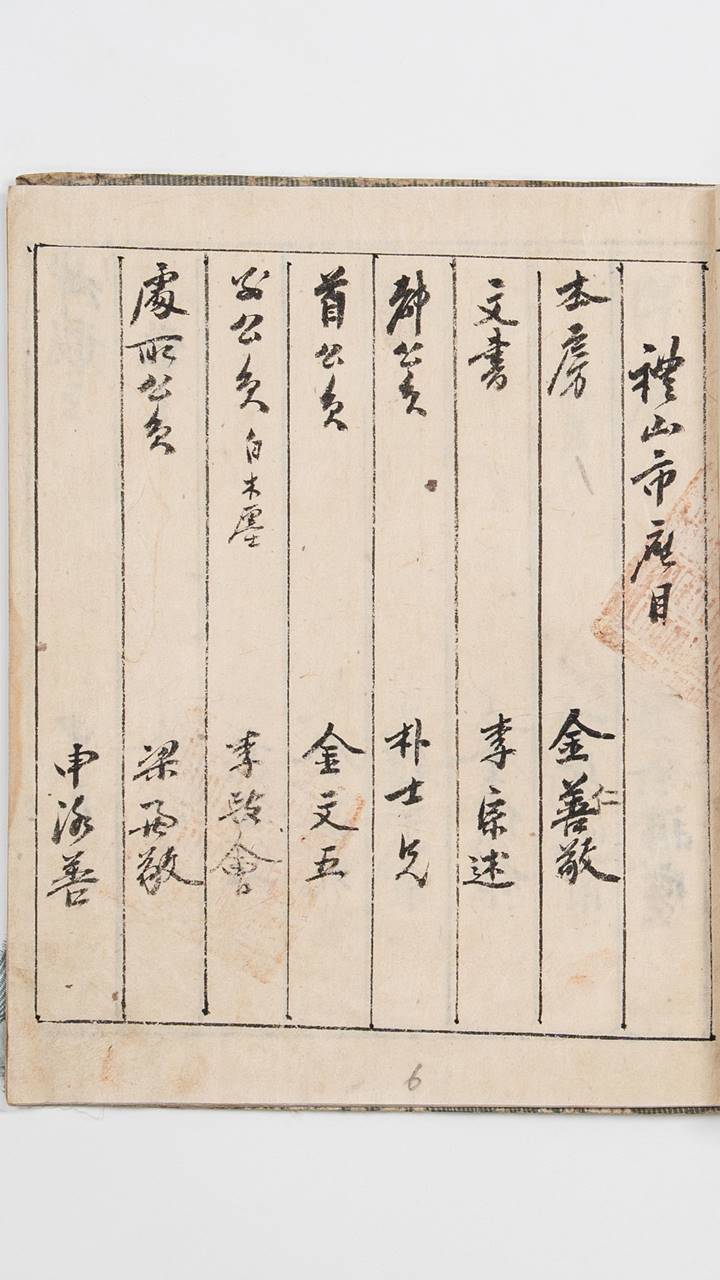 禮山市座目
本房 金善敬 仁
文書 李宗述
都公員 朴士兄
首公員 金文五
公員 白木廛 李 會
處所公員 梁 敬
申 善
6